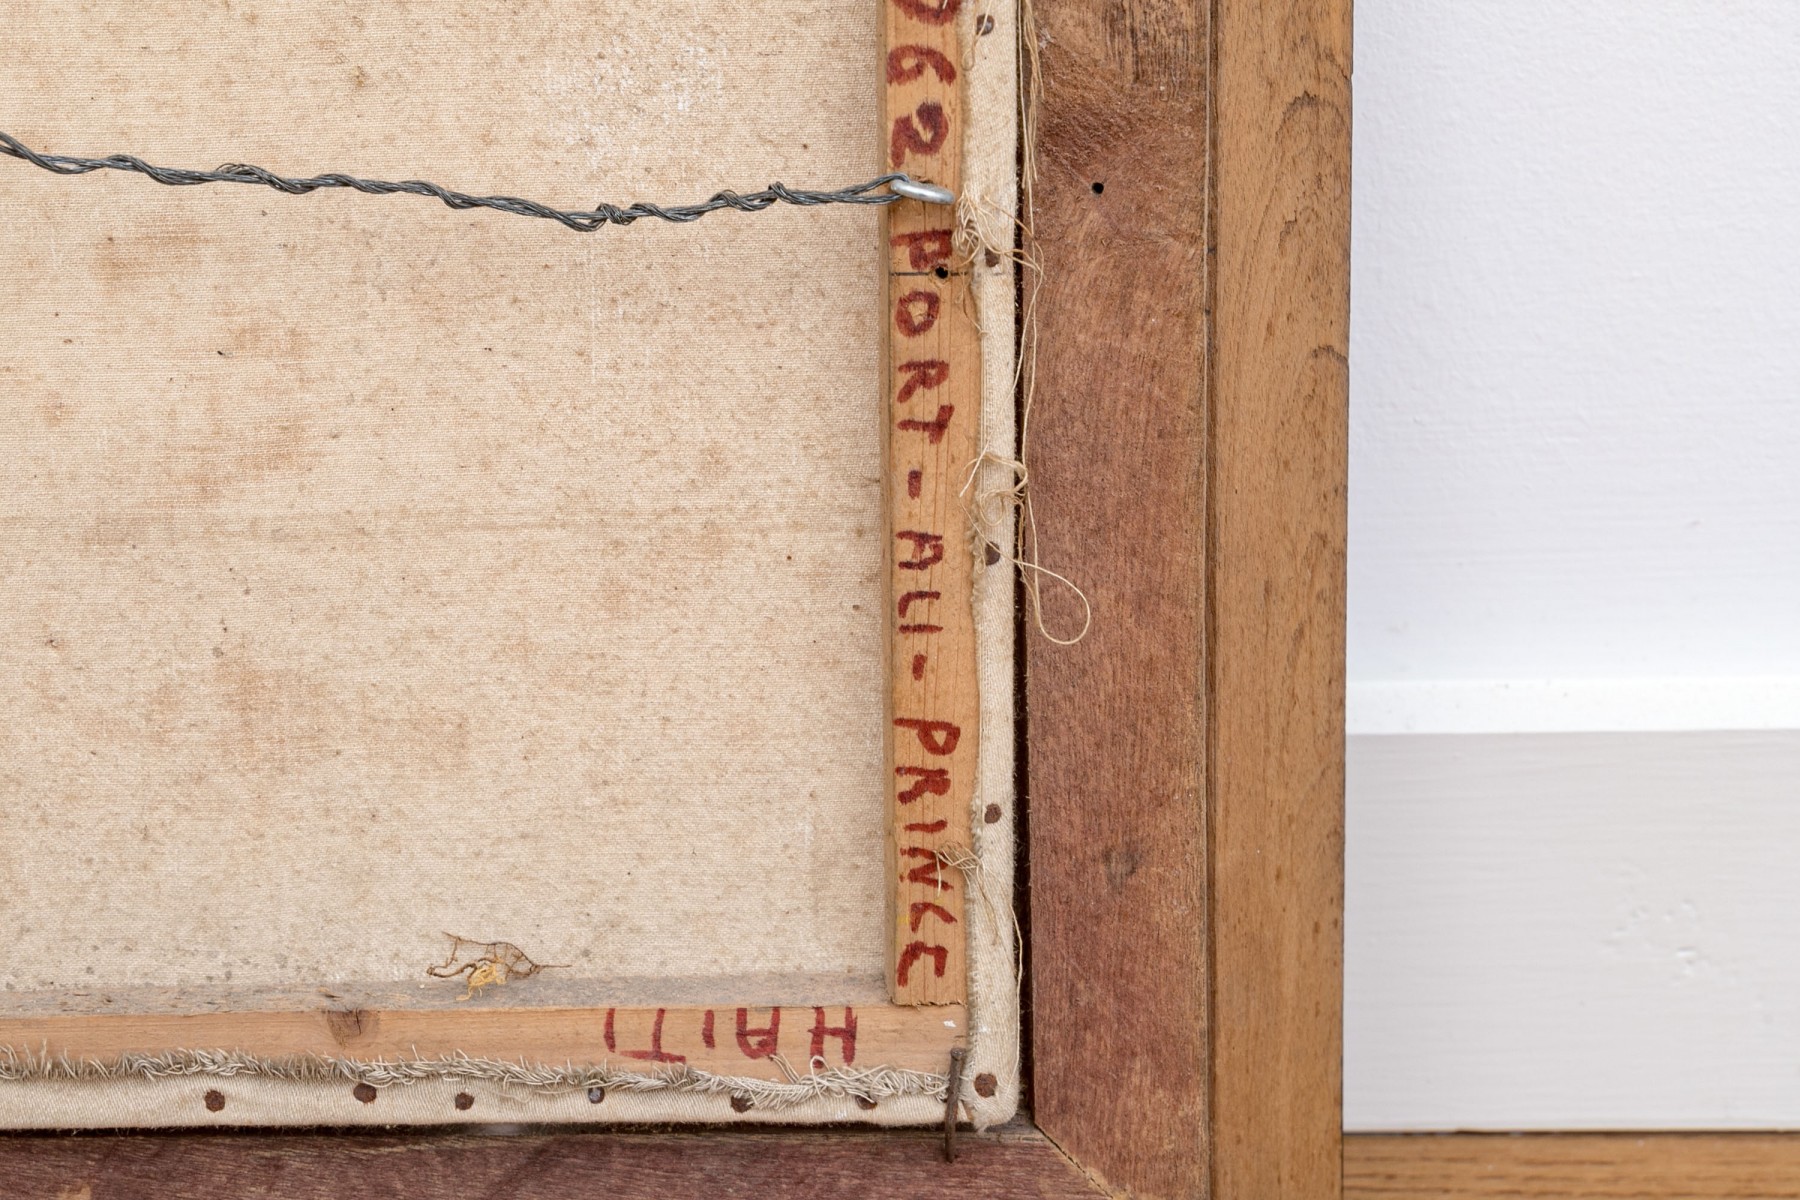 62 PORT-AU-PRINCE
HAITI